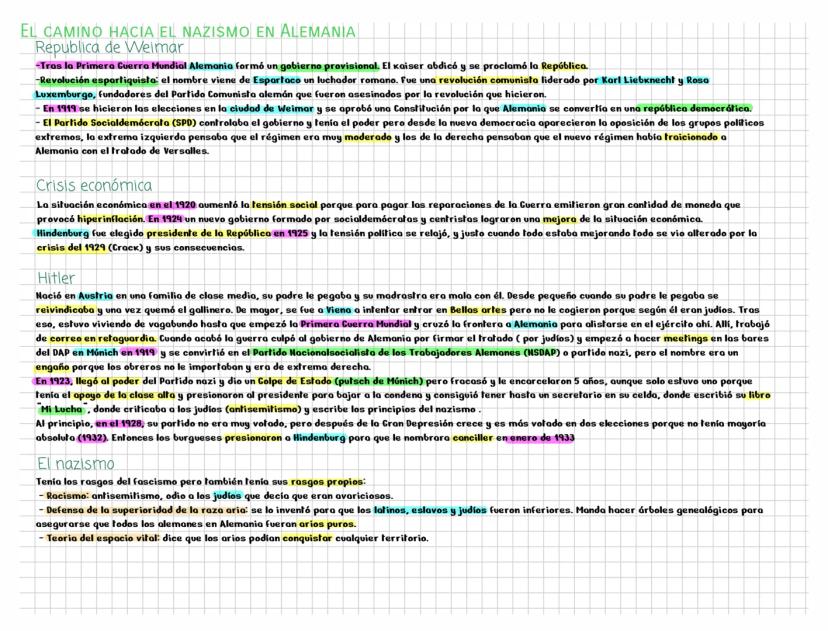 EL CAMINO HACIA EL NAZISMO EN ALEMANIA
Republica de Weimar
-Tras la Primera Guerra Mundial Alemania formó un gobierno provisional. El kaiser abdicó y se proclamó la República.
-Revolución espartiquista: el nombre viene de Espartaco un luchador romano. Fue una revolución comunista liderado por Karl Liebknecht y Rosa
Luxemburgo, fundadores del Partido Comunista alemán que fueron asesinados por la revolución que hicieron.
- En 1919 se hicieron las elecciones en la ciudad de Weimar y se aprobó una Constitución por la que Alemania se convertía en una república democrática.
- El Partido Socialdemócrata (SPD) controlaba el gobierno y tenía el poder pero desde la nueva democracia aparecieron la oposición de los grupos políticos
extremos, la extrema izquierda pensaba que el régimen era muy moderado y los de la derecha pensaban que el nuevo régimen había traicionado a
Alemania con el tratado de Versalles.
Crisis económica
La situación económica en el 1920 aumentó la tensión social porque para pagar las reparaciones de la Guerra emitieron gran cantidad de moneda que
provocó hiperinflación. En 1924 un nuevo gobierno formado por socialdemócratas y centristas lograron una mejora de la situación económica.
Hindenburg fue elegido presidente de la República en 1925 y la tensión política se relajó, y justo cuando todo estaba mejorando todo se vio alterado por la
crisis del 1929 (Crack) y sus consecuencias.
Hitler
Nació en Austria en una familia de clase media, su padre le pegaba y su madrastra era mala con él. Desde pequeño cuando su padre le pegaba se
reivindicaba y una vez quemó el gallinero. De mayor, se fue a Viena a intentar entrar en Bellas artes pero no le cogieron porque según él eran judíos. Tras
eso, estuvo viviendo de vagabundo hasta que empezó la Primera Guerra Mundial y cruzó la frontera a Alemania para alistarse en el ejército ahí. Allí, trabajó
de correo en retaguardia. Cuando acabó la guerra culpó al gobierno de Alemania por firmar el tratado ( por judíos) y empezó a hacer meetings en las bares
del DAP en Múnich en 1919 y se convirtió en el Partido Nacionalsocialista de los Trabajadores Alemanes (NSDAP) o partido nazi, pero el nombre era un
engaño porque los obreros no le importaban y era de extrema derecha.
En 1923, llegó al poder del Partido nazi y dio un Golpe de Estado (putsch de Múnich) pero fracasó y le encarcelaron 5 años, aunque solo estuvo uno porque
tenía el apoyo de la clase alta y presionaron al presidente para bajar a la condena y consiguió tener hasta un secretario en su celda, donde escribió su libro
"Mi Lucha", donde criticaba a los judíos (antisemitismo) y escribe los principios del nazismo .
Al principio, en el 1928, su partido no era muy votado, pero después de la Gran Depresión crece y es más votado en dos elecciones porque no tenía mayoría
absoluta (1932). Entonces los burgueses presionaron a Hindenburg para que le nombrara canciller en enero de 1933
El nazismo
Tenía los rasgos del fascismo pero también tenía sus rasgos propios:
- Racismo: antisemitismo, odio a los judíos que decía que eran avariciosos.
- Defensa de la superioridad de la raza aria: se lo inventó para que los latinos, eslavos y judíos fueron inferiores. Manda hacer árboles genealógicos para
asegurarse que todos los alemanes en Alemania fueran arios puros.
- Teoría del espacio vital: dice que los arios podían conquistar cualquier territorio.